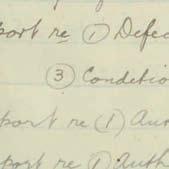 port re ① Defec
③ Conditio
port re ① Aut
port re ① Auth